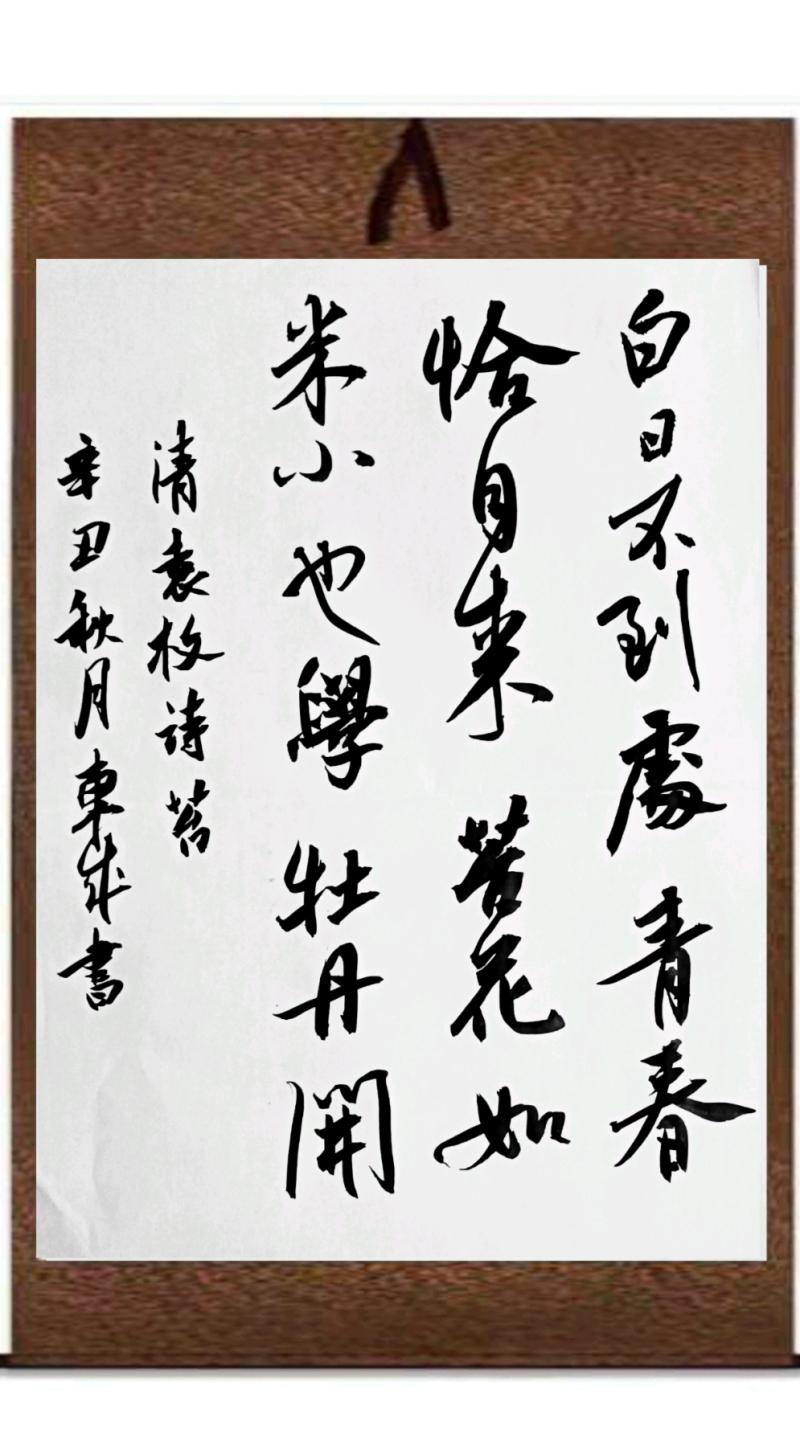 白日不到處青春
恰自来苔花如
米小也學牡丹開
清袁枚詩苔
辛丑秋月東成書